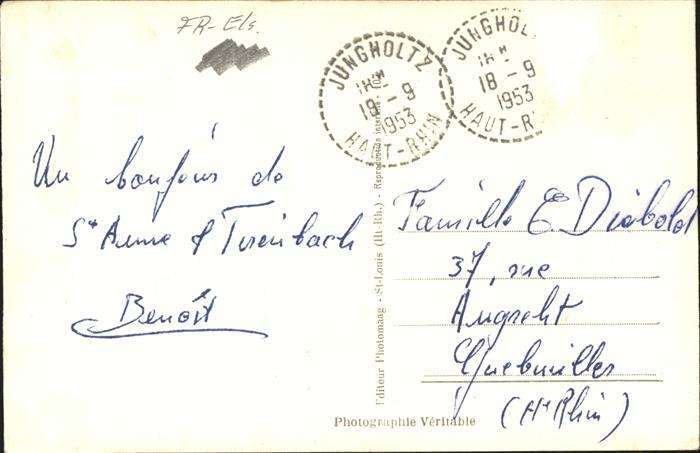 FR-Els.
JUNGHOLTZ
18 - 9
1953
HAUT-RHIN
JUNGHOLTZ
18 - 9
1953
HAUT-RHIN
Un bonjour de
St Anne & Tierenbach
Benoît
Famille E. Diebold
37, rue
Guebwiller
(Ht Rhin)
Editeur Photomaag - St-Louis (Ht-Rh.) - Reproduction interdite
Photographie Véritable